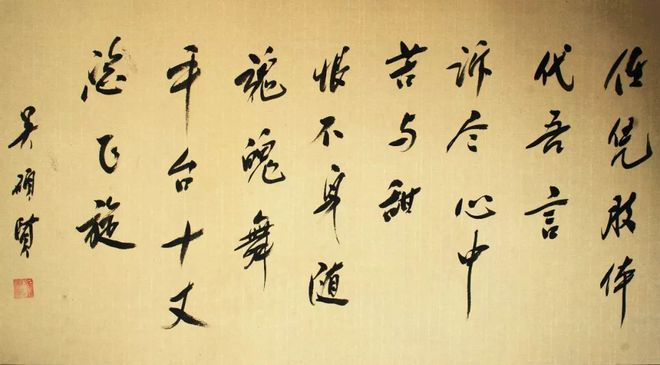 任凭肢体
代吾言
诉尽心中
苦与甜
恨不身随
魂魄舞
平台十丈
恣飞旋
吴硕贤